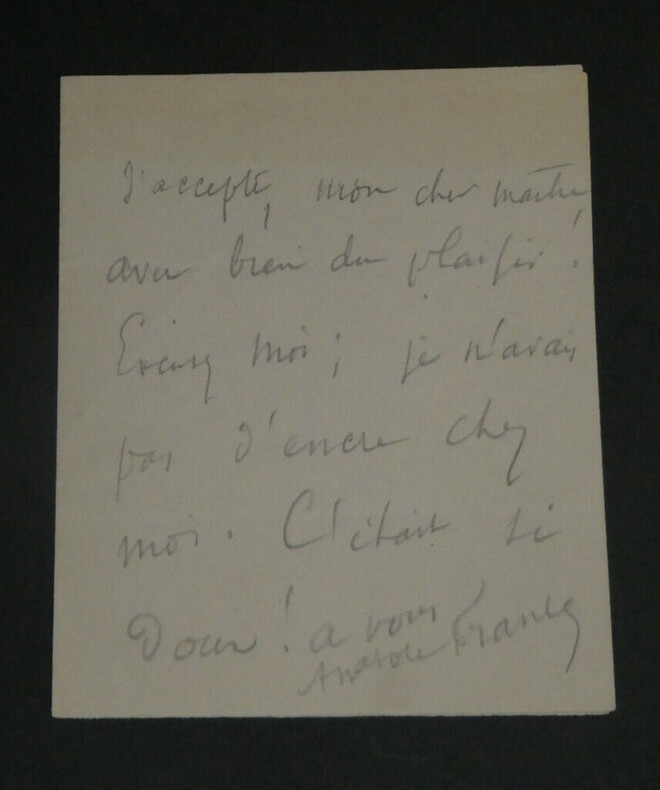 J'accepte, mon cher maître
avec bien du plaisir !
Excusez moi ; je n'avais
pas d'encre chez
moi. C'était si
doux ! à vous
Anatole France